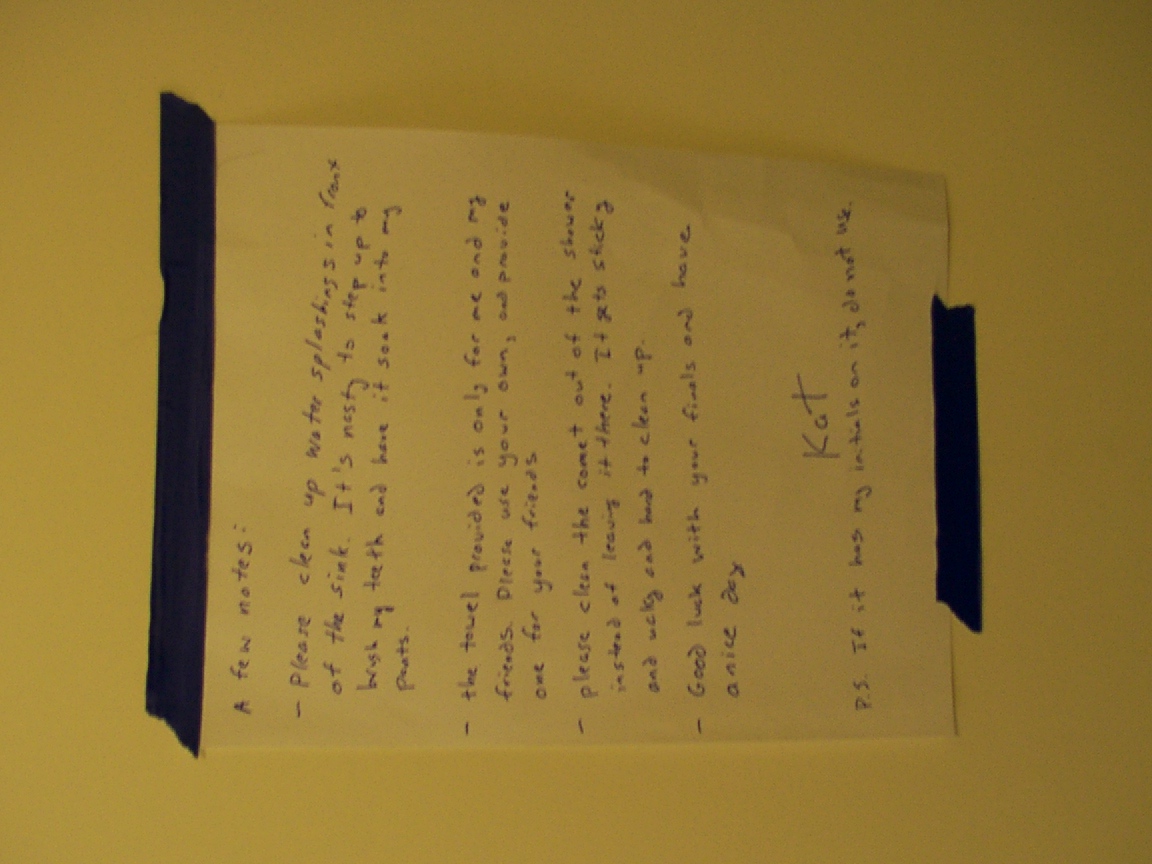 A few notes:
- Please clean up water splashings in front
of the sink. It's nasty to step up to
brush my teeth and have it soak into my
pants.
- the towel provided is only for me and my
friends. Please use your own, and provide
one for your friends
- please clean the comet out of the shower
instead of leaving it there. It gets sticky
and ucky and hard to clean up.
- Good luck with your finals and have
a nice day
Kat
P.S. If it has my initials on it, do not use.